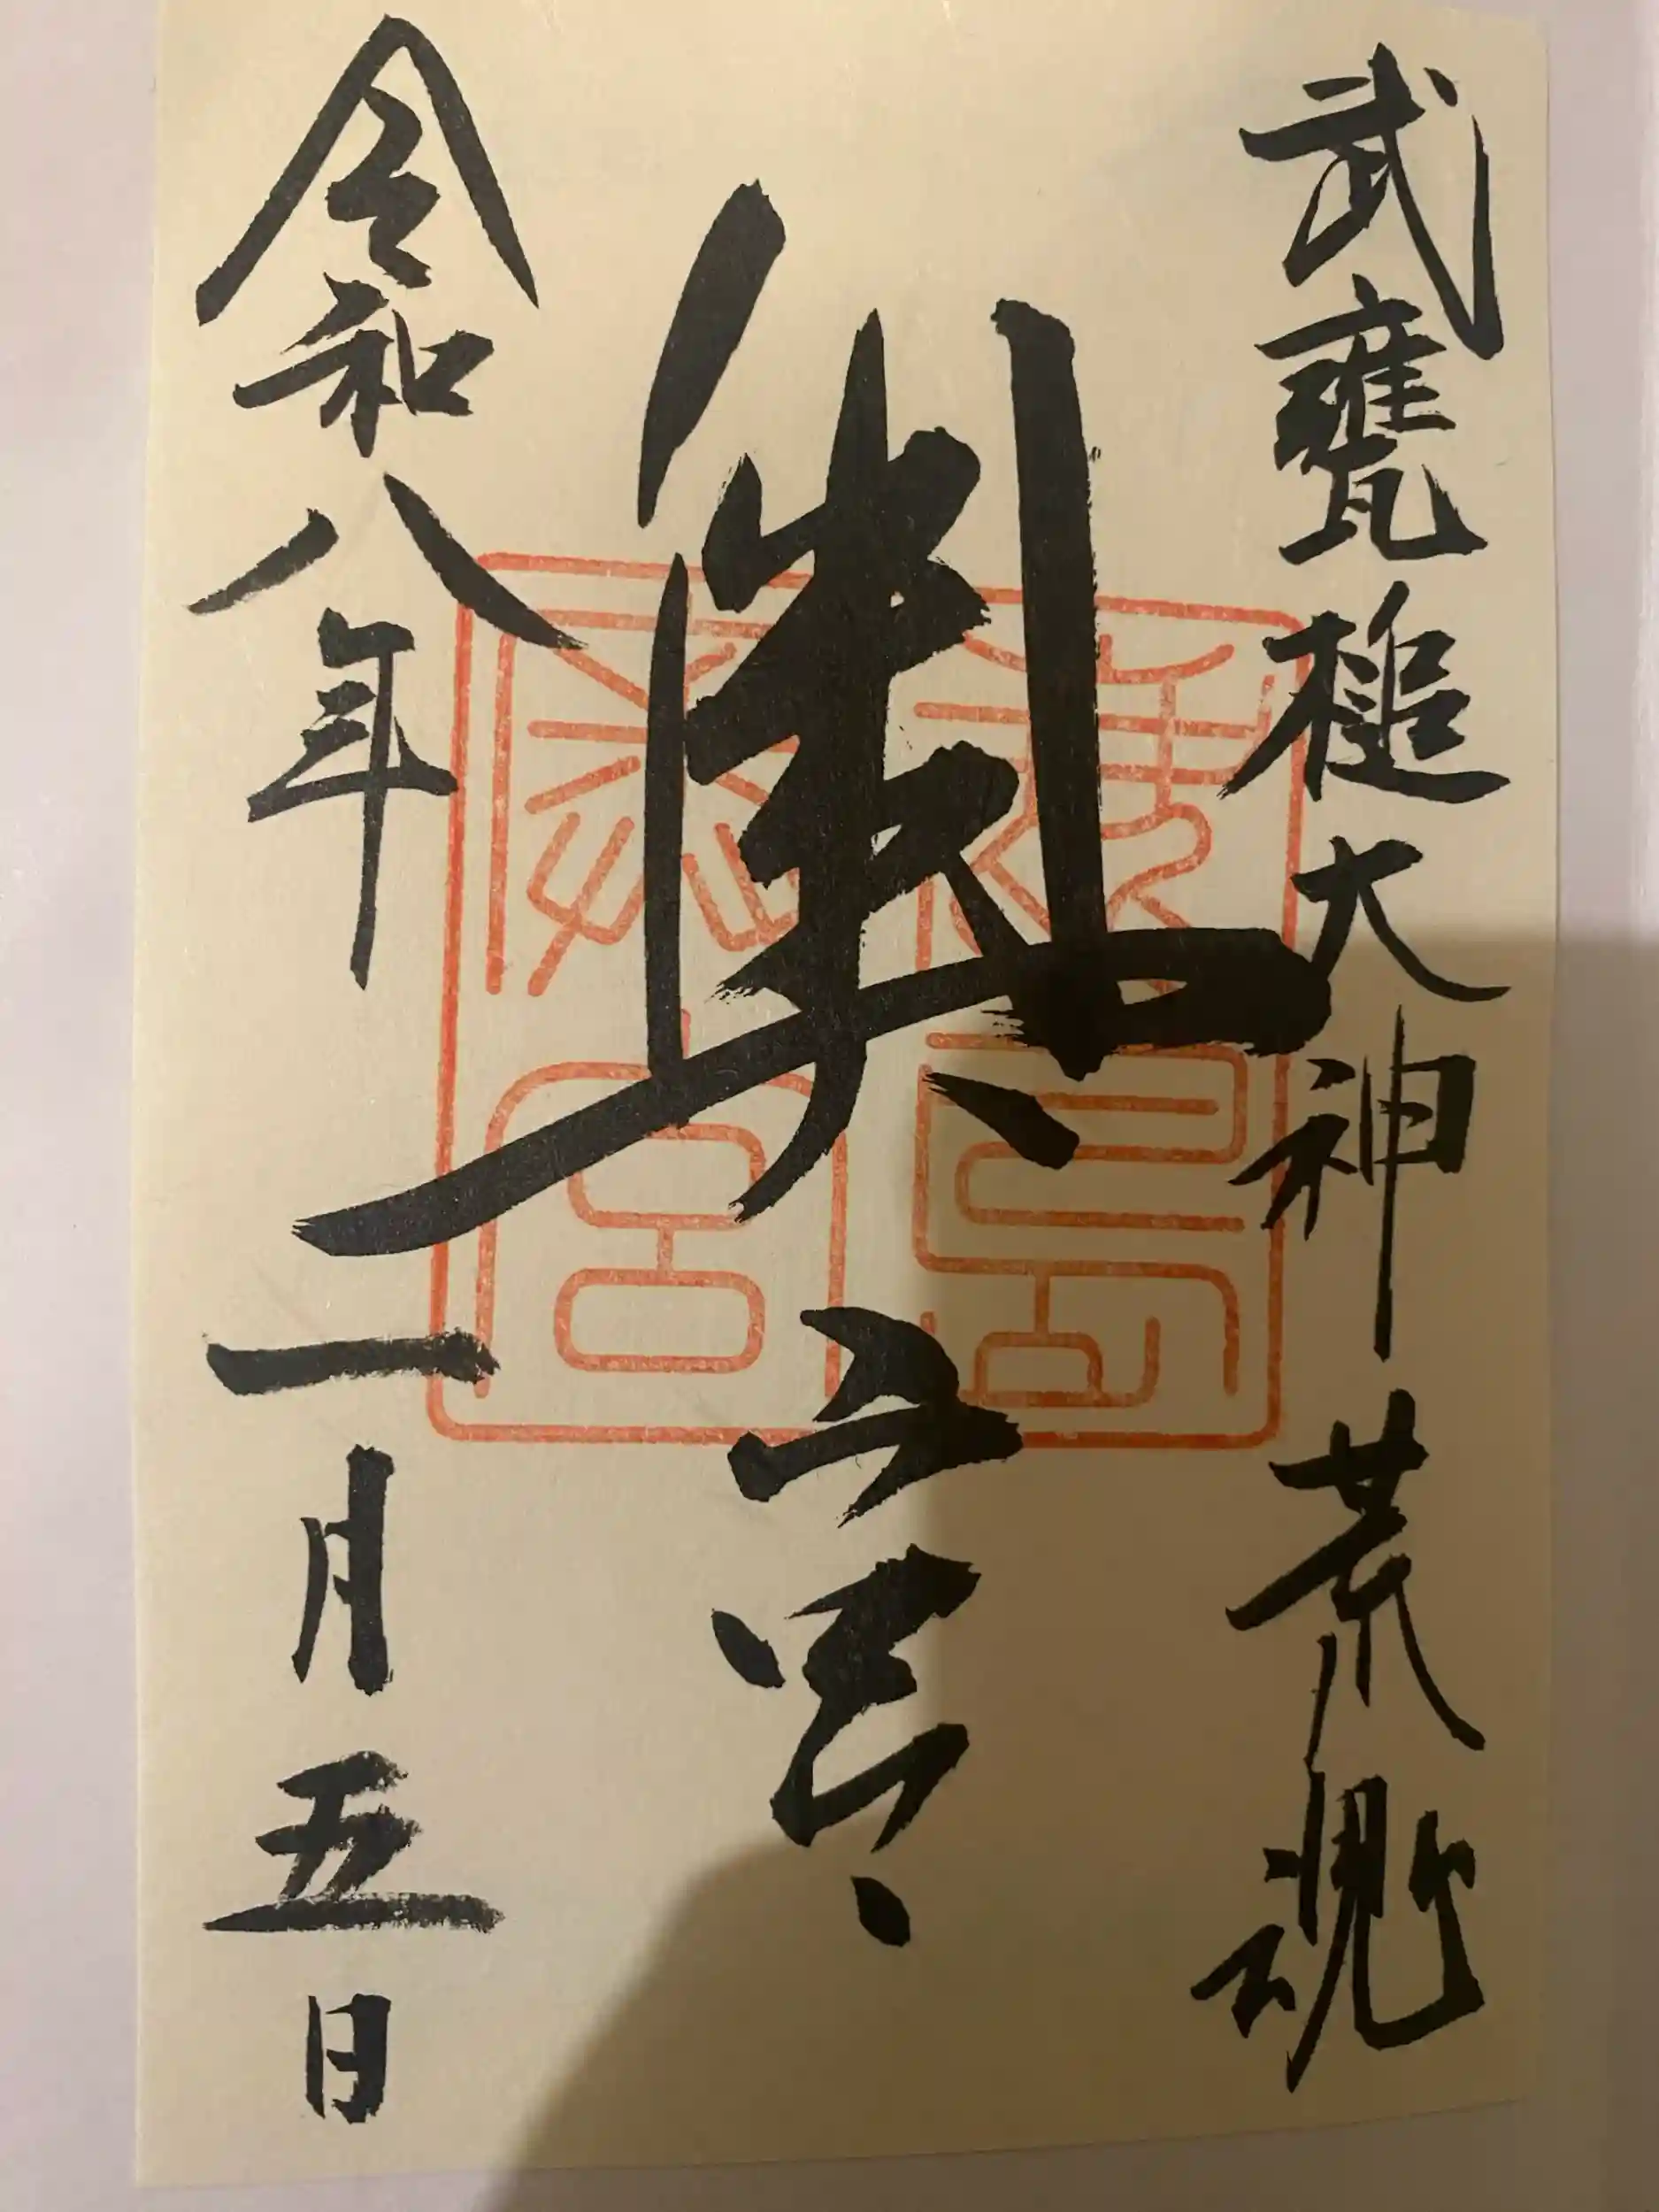 武甕槌大神荒魂
奥宮
鹿島
奥宮
令和八年一月五日